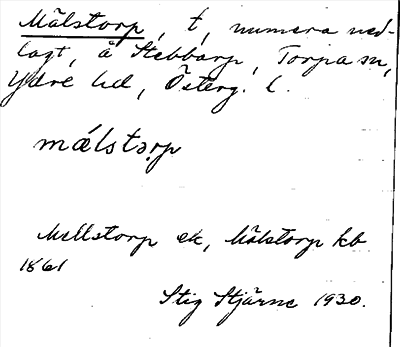 Mälstorp, t, numera ned-
lagt, å Stebbarp, Torpa sn,
Ydre hd, Österg. l.
mǽlstǝrp
Mellstorp ek, Mälstorp kb
1861
Stig Stjärne 1930.